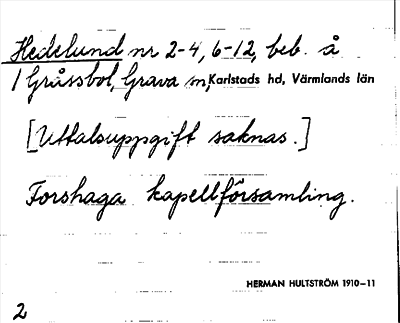 Hedelund nr 2-4, 6-12, beb. å
1 Gråssbol, Grava sn, Karlstads hd, Värmlands län
[Uttalsuppgift saknas.]
Forshaga kapellförsamling.
HERMAN HULTSTRÖM 1910-11
2